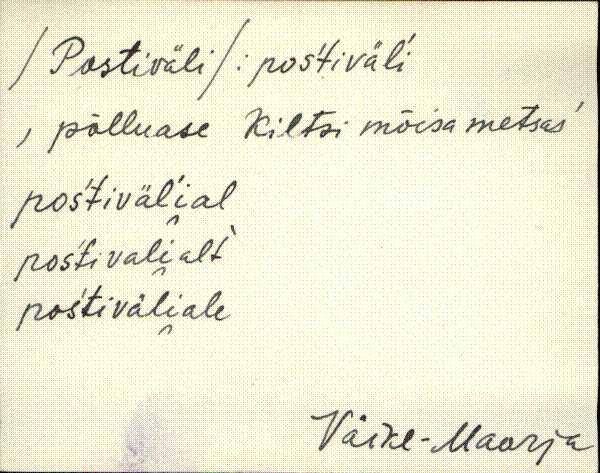 /Postiväli/: pos´tiväl´i
, põlluase Kiltsi mõisa metsas´
pos´tiväl´i̯al
pos´tivali̯alt`
pos´tiväli̯ale
Väike-Maarja